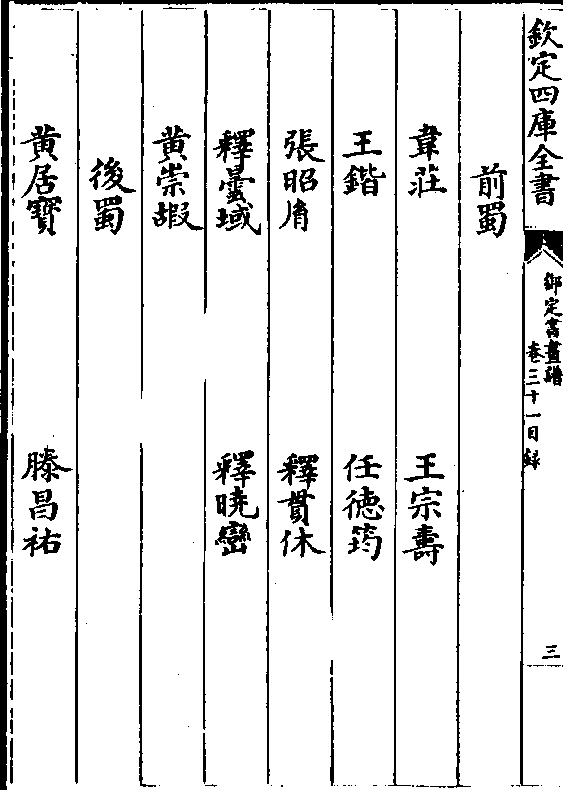 欽定四庫全書
御定書畫譜
卷三十一目録
三
前蜀
韋莊 王宗壽
王鍇 任徳筠
張昭𦙍 釋貫休
釋曇域 釋曉巒
黄崇嘏
後蜀
黄居寳 滕昌祐